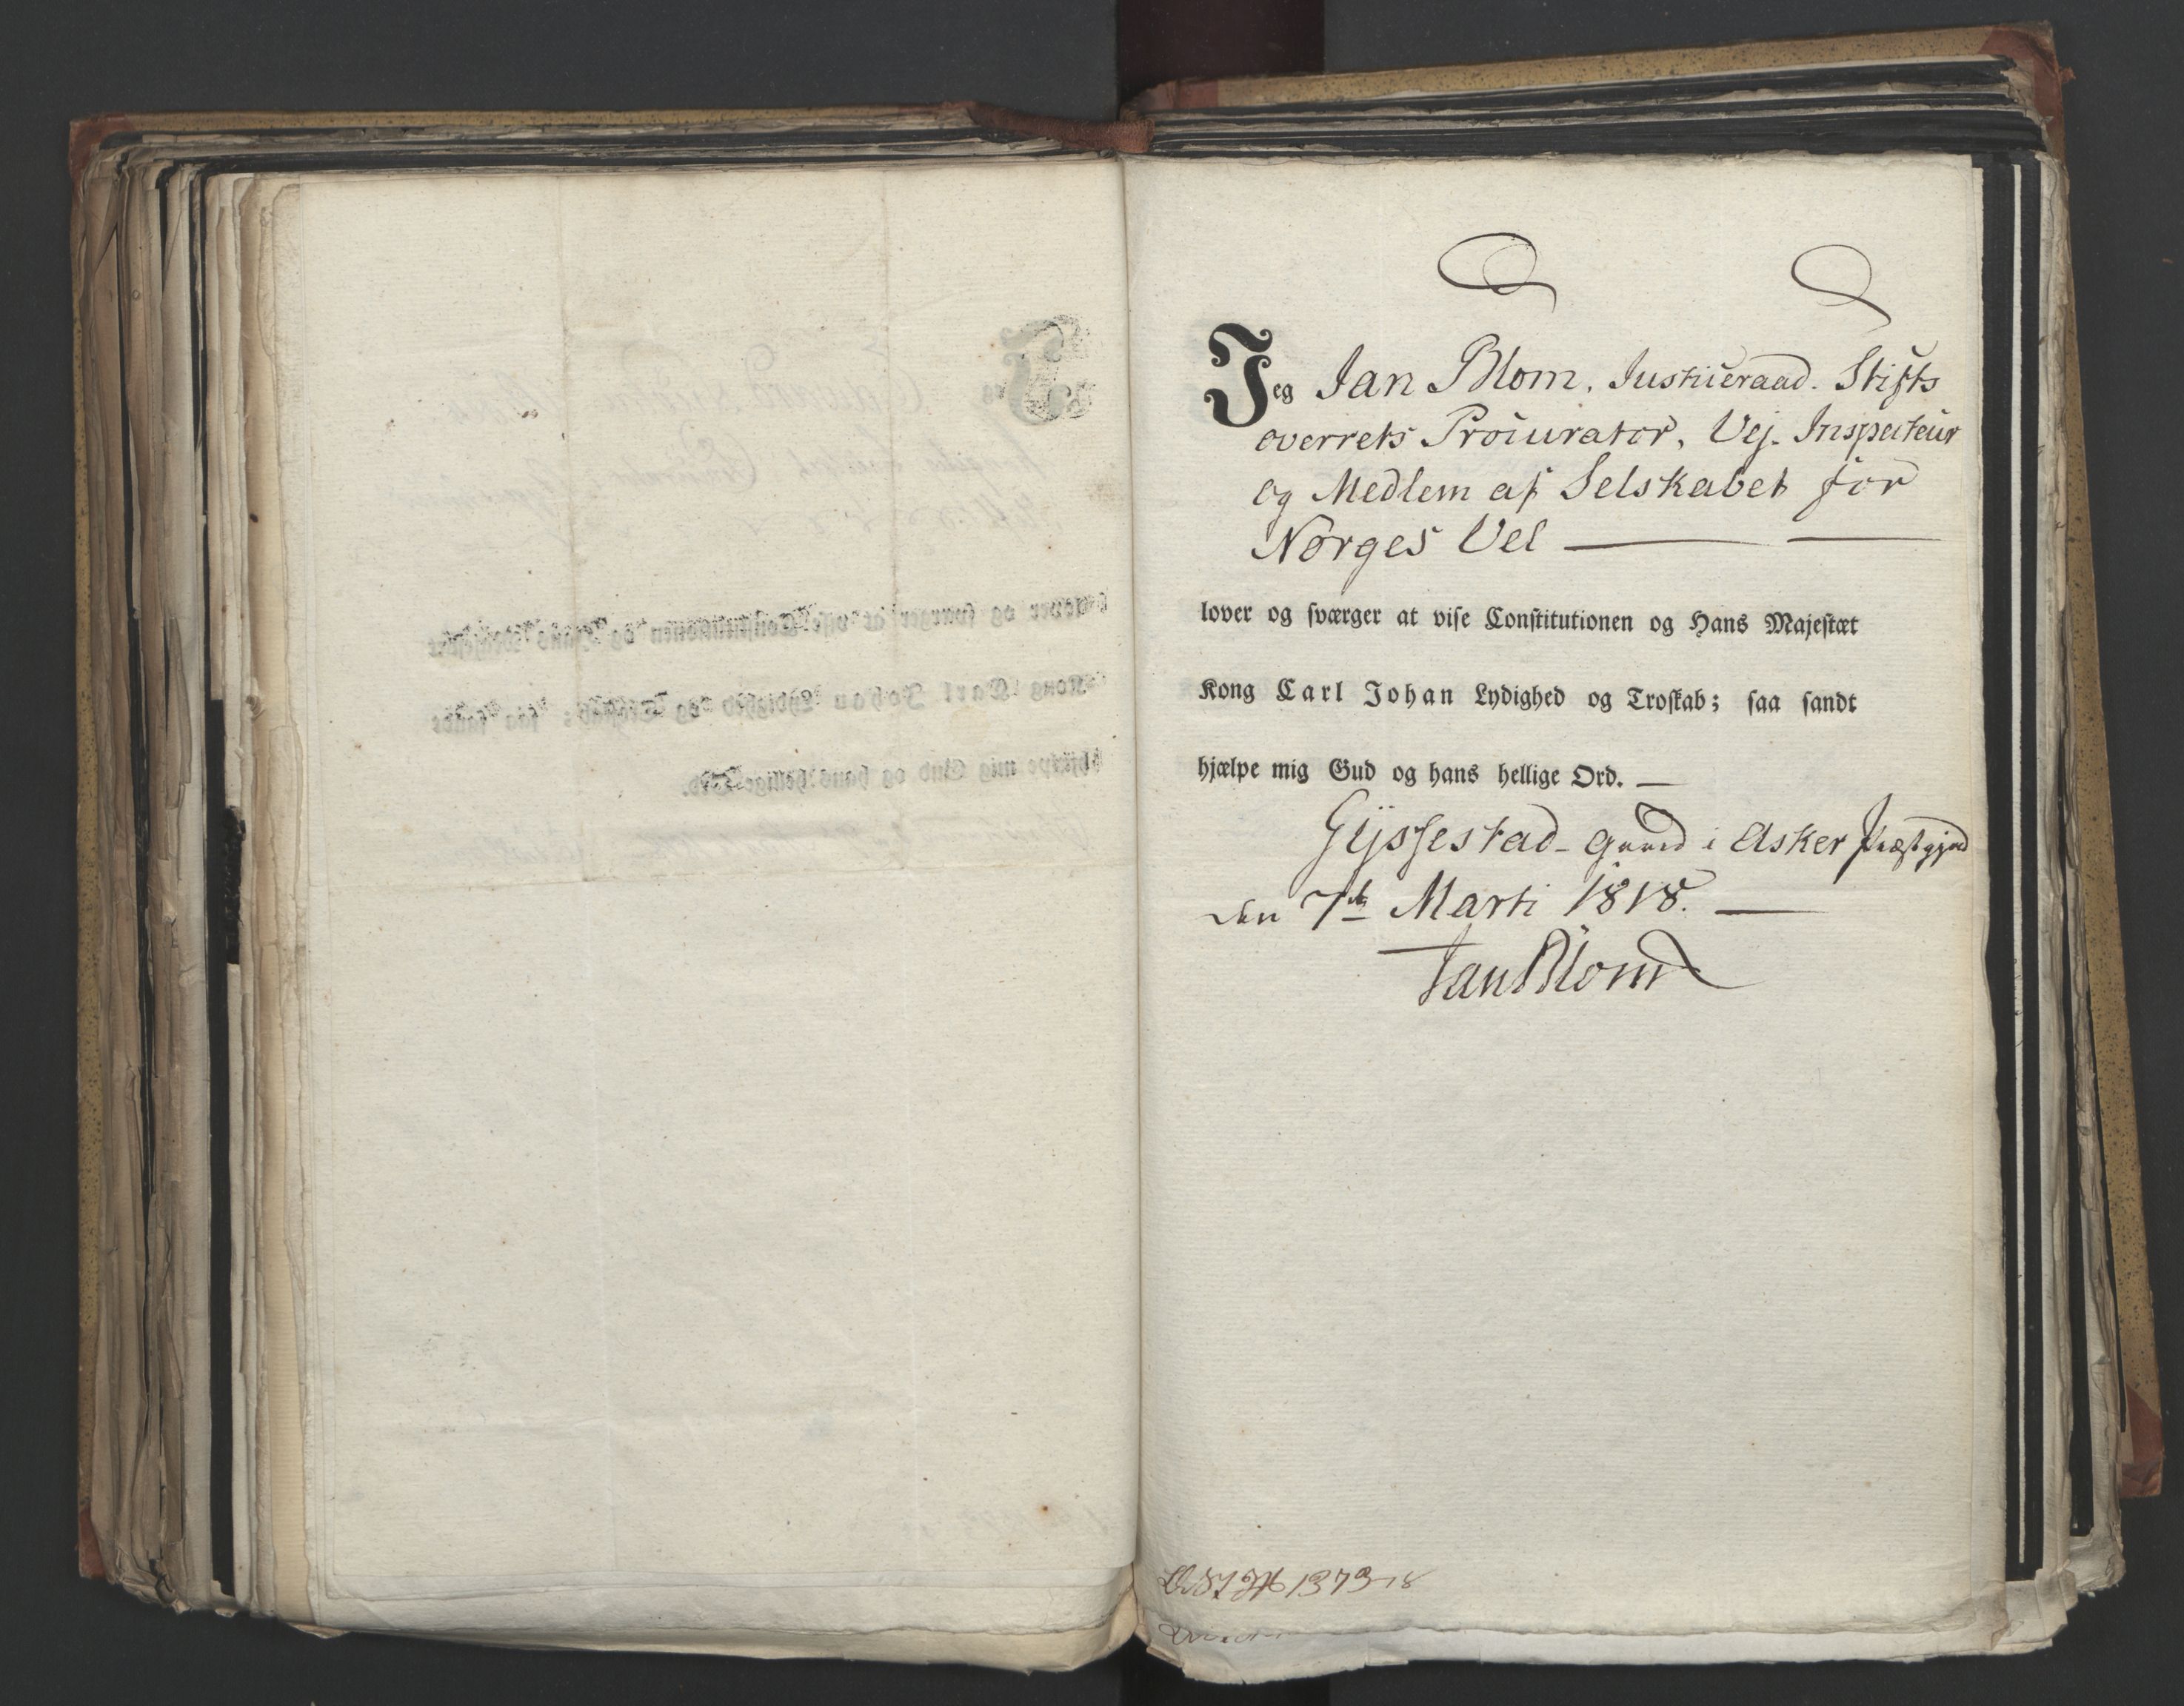 Jeg Jan Blom, Justiceraad. Stifts
overrets Procurator, Vej-Inspecteur
og Medlem af Selskabet for
Norges Vel ——
lover og sværger at vise Constitutionen og Hans Majestæt
Kong Carl Johan Lydighed og Troskab; saa sandt
hjælpe mig Gud og hans hellige Ord. —
Gyssestad-Gaard i Asker Præstgjed
den 7de Marti 1818. —
Jan Blom
1373-18